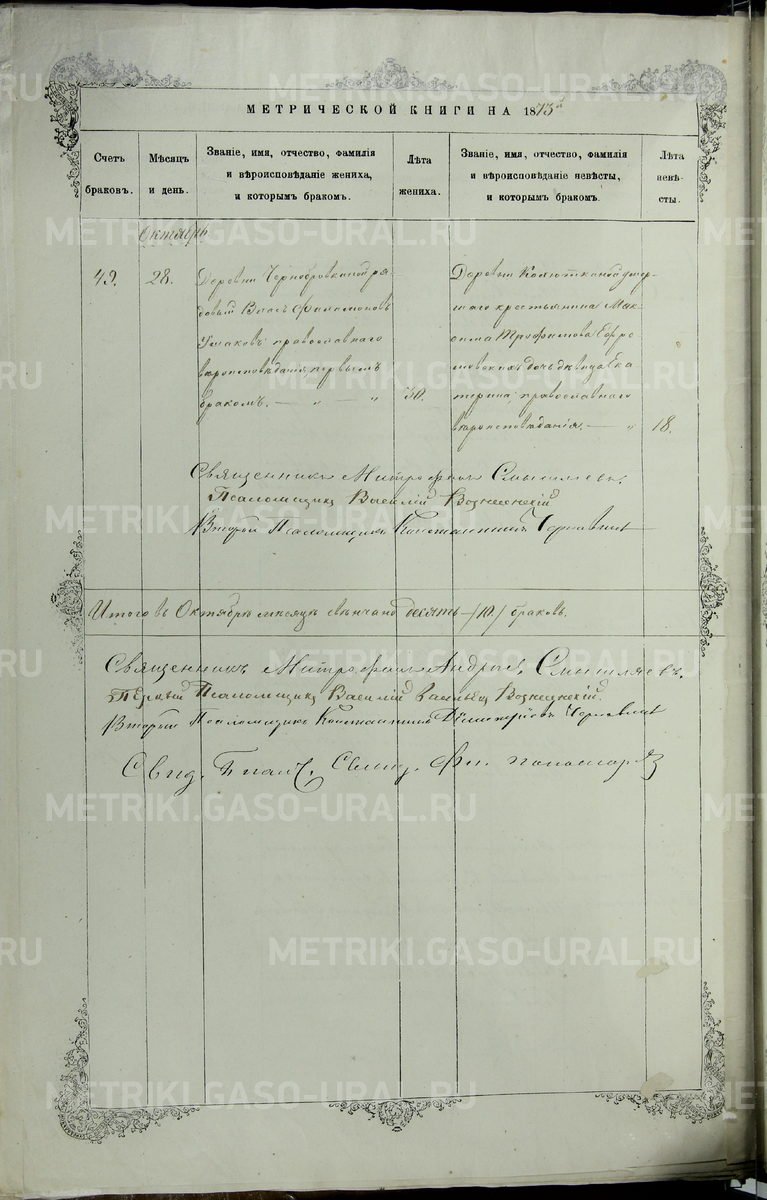 МЕТРИЧЕСКОЙ КНИГИ НА 1873
Счетъ браковъ.
Мѣсяцъ и день.
Званіе, имя, отчество, фамилія
и вѣроисповѣданіе жениха,
и которымъ бракомъ.
Лѣта жениха.
Званіе, имя, отчество, фамилія
и вѣроисповѣданіе невѣсты,
и которымъ бракомъ.
Лѣта невѣ-
сты.
Октябрь
49.
28.
Деревни Чернобровкиной ря-
довый Власъ Филимоновъ
Ушаковъ православнаго
вѣроисповѣданія, первымъ
бракомъ.
30.
Деревни Колюткиной умер-
шаго крестьянина Мак-
сима Трофимова Ефре-
мовскихъ дочь дѣвица Ека
терина, православнаго
вѣроисповѣданія.
18.
Священникъ Митрофанъ Смышляевъ.
Псаломщикъ Василій Вознесенскій
Второй Псаломщикъ Константинъ
Итого въ Октябрѣ мѣсяцѣ вѣнчано десять /10/ браковъ.
Священникъ Митрофанъ Андреевъ Смышляевъ.
Первый Псаломщикъ Василій Васильевъ Вознесенскій.
Второй Псаломщикъ Константинъ Димитріевъ
Свид. Благоч. Свящ. Пономаревъ
METRIKI.GASO-URAL.RU